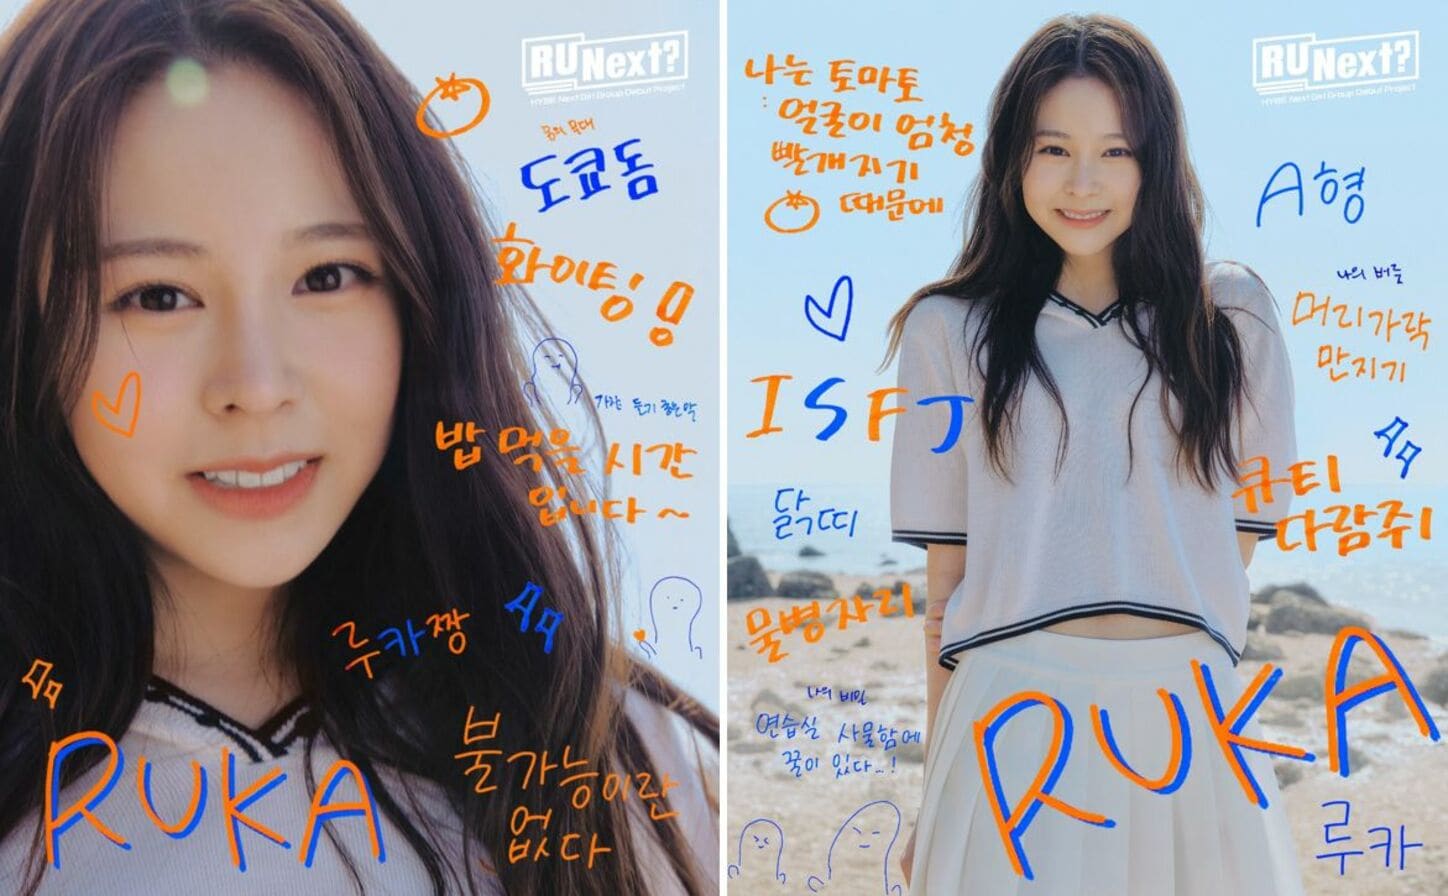 RU Next?
HYBE Next Girl Group Debut Project
꿈의 무대
도쿄돔
화이팅!
가장 듣기 좋은 말
밥 먹을 시간
입니다~
루카짱
RUKA
불가능이란
없다
RU Next?
HYBE Next Girl Group Debut Project
나는 토마토
: 얼굴이 엄청
빨개지기
때문에
A형
나의 버릇
머리가락
만지기
ISFJ
닭띠
큐티
다람쥐
물병자리
나의 비밀
연습실 사물함에
꿀이 있다...!
RUKA
루카